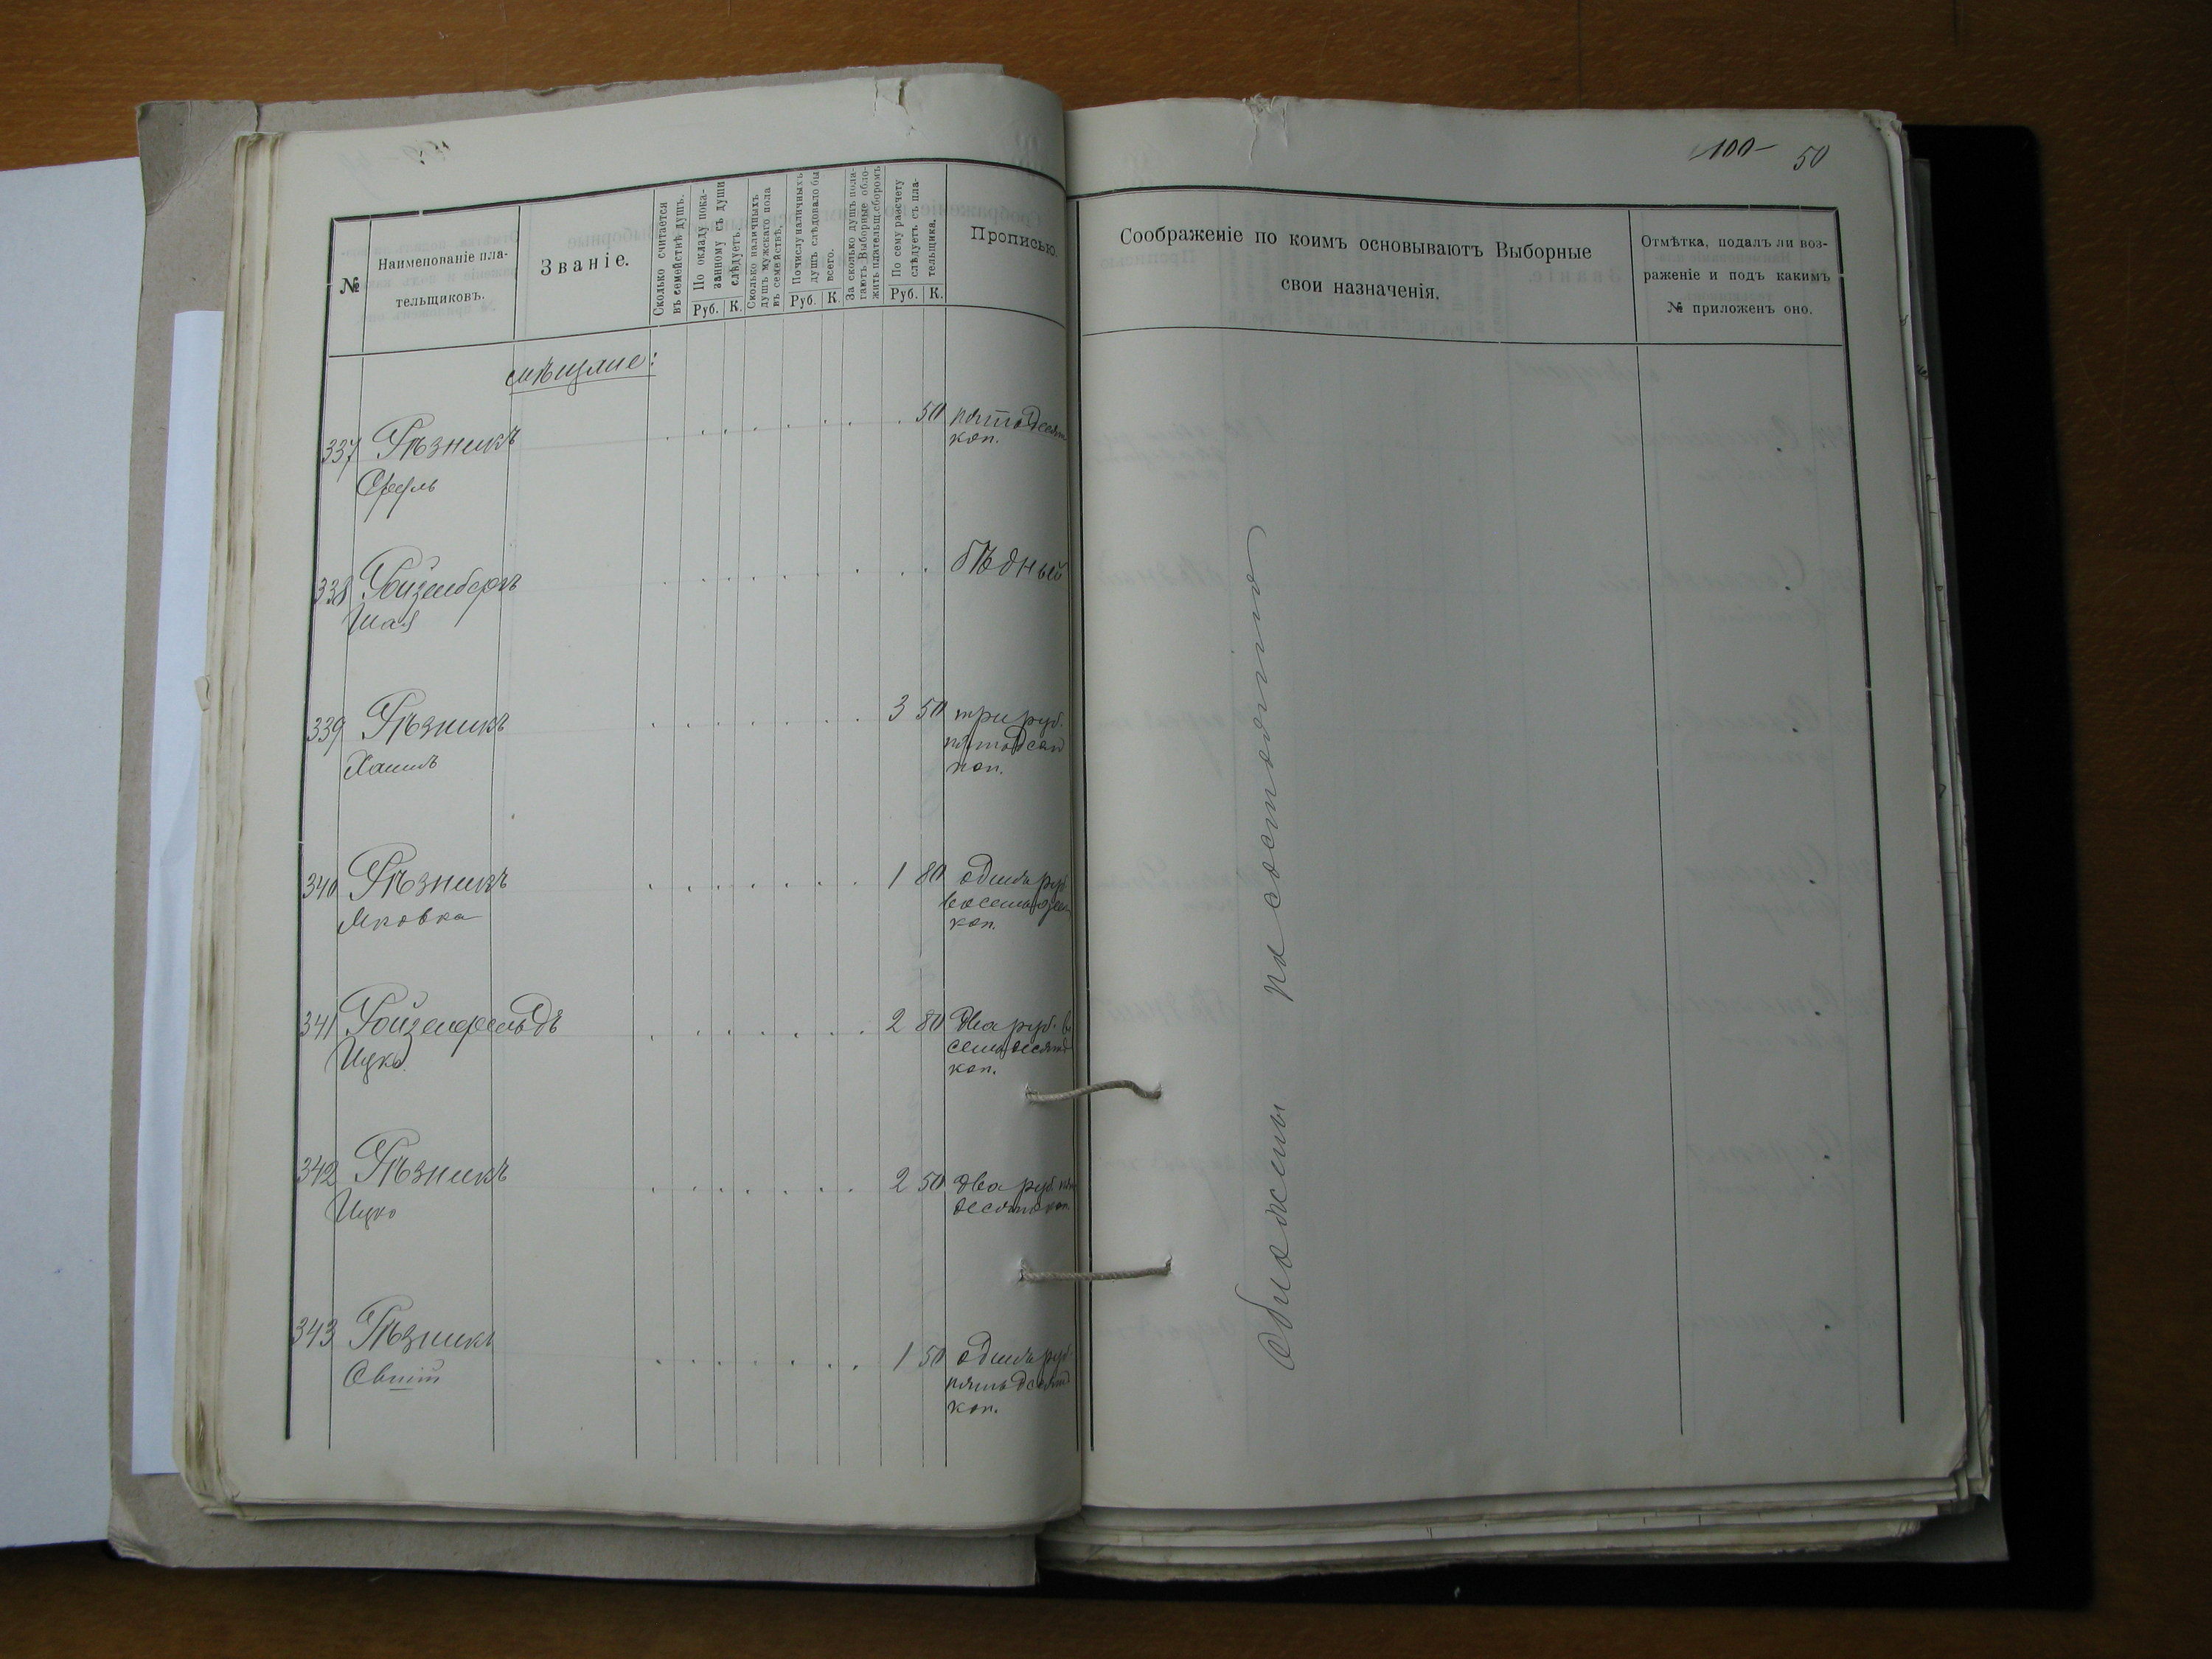 -100-
50
№
Наименованіе пла-
тельщиковъ.
Званіе.
Сколько считается
въ семействѣ душъ.
По окладу пока-
занному съ души
слѣдуетъ.
Руб. К.
Сколько наличныхъ
душъ мужскаго пола
въ семействѣ.
По числу наличныхъ
душъ слѣдовало бы
всего.
Руб. К.
За сколько душъ пола-
гаютъ Выборные обло-
жить плательщ. сборомъ
По сему разсчету
слѣдуетъ съ пла-
тельщика.
Руб. К.
Прописью.
Соображеніе по коимъ основываютъ Выборные
свои назначенія.
Отмѣтка, подалъ ли воз-
раженіе и подъ какимъ
№ приложенъ оно.
мѣщане:
337 Рѣзникъ 50 пятьдесят
коп.
338 Ройзенбергъ бѣдный
Шая
339 Рѣзникъ 3 50 три руб.
пятьдесят
Хаимъ коп.
340 Рѣзникъ 1 80 одинъ руб.
Янковка восемьдесят
коп.
341 Ройзенфельдъ 2 80 два руб. во
Ицко семьдесятъ
коп.
342 Рѣзникъ 2 50 два руб. пят
Ицко десятъ коп.
343 Рѣзникъ 1 50 одинъ руб.
пятьдесятъ
коп.
Обложены по состоянію